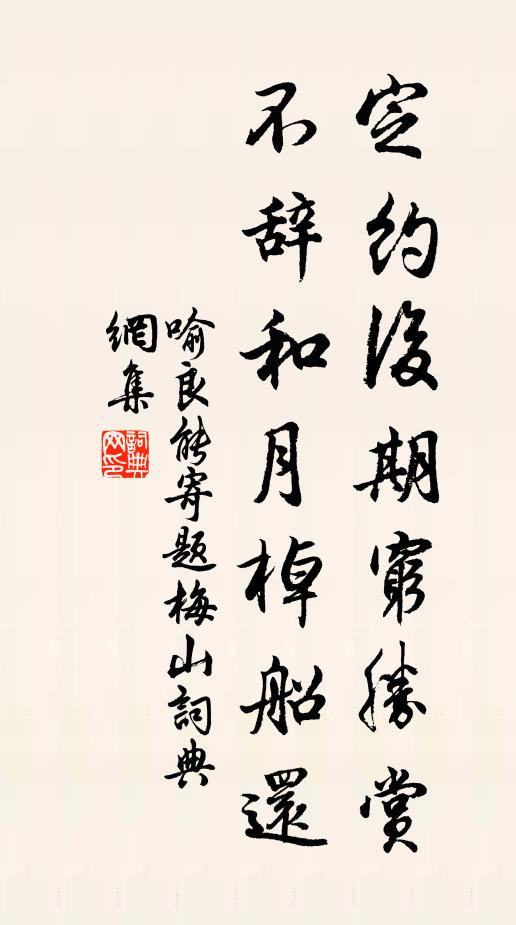 定約後期窮勝賞
不辞和月棹船還
喻良能寄题梅山詞典
網集
詞典网印